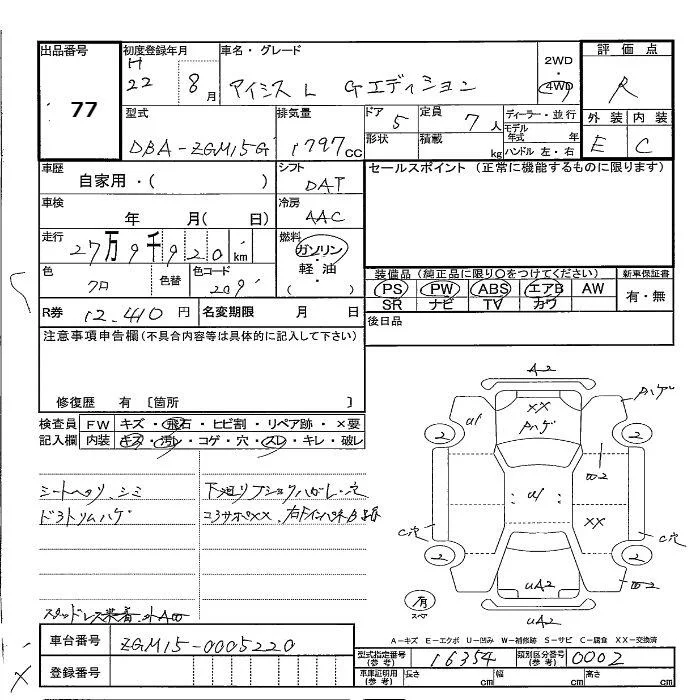 出品番号 初度登録年月 車名・グレード 評価点
77
H
22 8月 アイシスL Gエディション 2WD・4WD R
型式 排気量 ドア 5 定員 7人 ディーラー・並行 外装 内装
DBA-ZGM15G 1797cc 形状 積載 kg モデル年式 年 ハンドル 左・右 E C
車歴 自家用・( ) シフト DAT セールスポイント(正常に機能するものに限ります)
車検 年 月( 日) 冷房 AAC
走行 27万9千920km 燃料 ガソリン・軽油 ( )
色 クロ 色替 色コード 209
装備品(純正品に限り○をつけてください) 新車保証書
PS PW ABS エアB AW 有・無
SR ナビ TV カワ
R券 12,410円 名変期限 月 日 後日品
注意事項申告欄(不具合内容等は具体的に記入して下さい)
修復歴 有 [箇所 ]
検査員記入欄 FW キズ・飛石・ヒビ割・リペア跡・×要
内装 キズ・汚レ・コゲ・穴・スレ・キレ・破レ
シートヘタリ、シミ
ドアトリムハゲ
下廻り
スタッドレス装着
A2
XX
ハゲ
U1
2 2
U1
XX
C穴 C穴
2 2
UA2
UA2
有
スペア
A-キズ E-エクボ U-凹み W-補修跡 S-サビ C-腐食 XX-交換済
車台番号 ZGM15-0005220
型式指定番号(参考) 16354 類別区分番号(参考) 0002
登録番号
車庫証明用(参考) 長さ cm 幅 cm 高さ cm